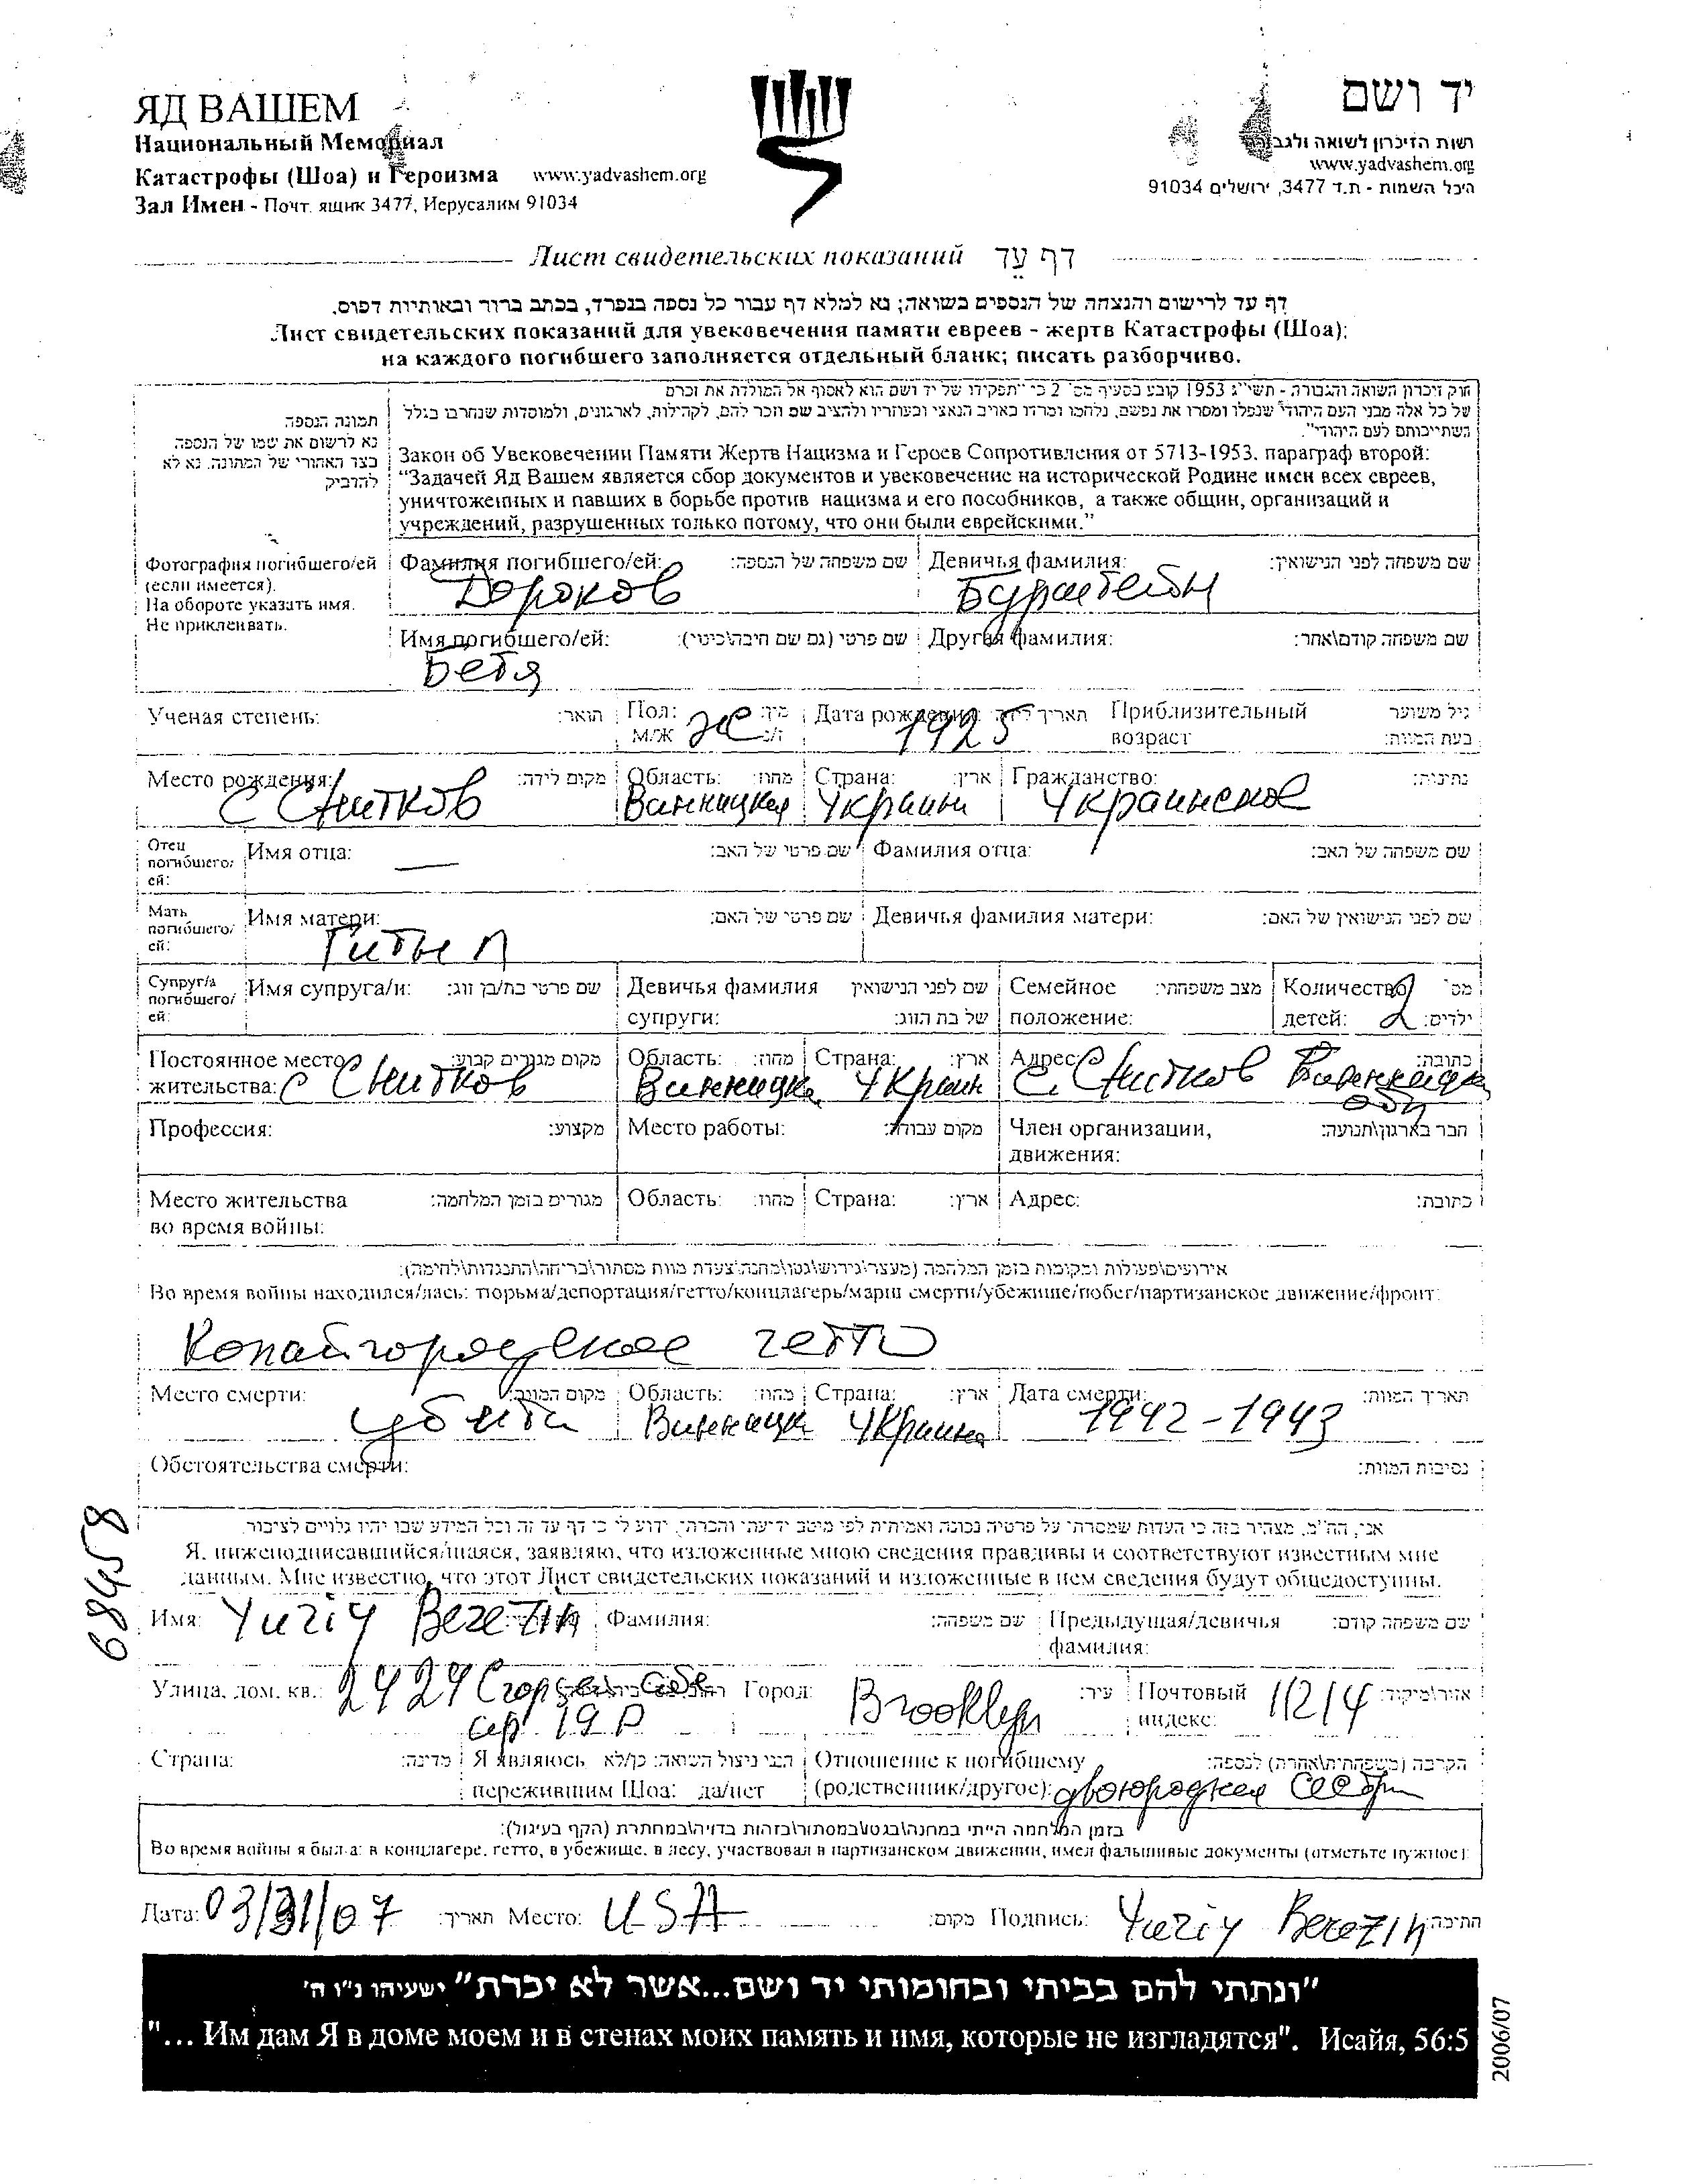 ЯД ВАШЕМ
Национальный Мемориал
Катастрофы (Шоа) и Героизма www.yadvashem.org
Зал Имен - Почт. ящик 3477, Иерусалим 91034
יד ושם
רשות הזיכרון לשואה ולגבורה
www.yadvashem.org
היכל השמות - ת.ד 3477, ירושלים 91034
Лист свидетельских показаний דף עֵד
דף עד לרישום והנצחה של הנספים בשואה; נא למלא דף עבור כל נספה בנפרד, בכתב ברור ובאותיות דפוס.
Лист свидетельских показаний для увековечения памяти евреев - жертв Катастрофы (Шоа);
на каждого погибшего заполняется отдельный бланк; писать разборчиво.
חוק זיכרון השואה והגבורה - תשי"ג 1953 קובע בסעיף מס' 2 כי "תפקידו של יד ושם הוא לאסוף אל המולדת את זכרם
של כל אלה מבני העם היהודי שנפלו ומסרו את נפשם, נלחמו ומרדו באויב הנאצי ובעוזריו ולהציב שם וזכר להם, לקהילות, לארגונים, ולמוסדות שנחרבו בגלל
השתייכותם לעם היהודי".
Закон об Увековечении Памяти Жертв Нацизма и Героев Сопротивления от 5713-1953. параграф второй:
"Задачей Яд Вашем является сбор документов и увековечение на исторической Родине имен всех евреев,
уничтоженных и павших в борьбе против нацизма и его пособников, а также общин, организаций и
учреждений, разрушенных только потому, что они были еврейскими."
תמונה הנספה
נא לרשום את שמו של הנספה
בצד האחורי של התמונה. נא לא
להדביק
Фотография погибшего/ей
(если имеется).
На обороте указать имя.
Не приклеивать.
Фамилия погибшего/ей: שם משפחה של הנספה: Девичья фамилия: שם משפחה לפני הנישואין:
Бурштейн
Имя погибшего/ей: שם פרטי (גם שם חיבה\כינוי): Другая фамилия: שם משפחה קודם\אחר:
Бетя
Ученая степень: תואר: Пол: מין: Дата рождения: תאריך לידה: Приблизительный גיל משוער
М/Ж ж ז/נ: 1925 возраст בעת המוות:
Место рождения: מקום לידה: Область: מחוז: Страна: ארץ: Гражданство: נתינות:
С Снитков Винницкая Украина Украинское
Отец погибшего/ей: Имя отца: — שם פרטי של האב: Фамилия отца: שם משפחה של האב:
Мать погибшего/ей: Имя матери: שם פרטי של האם: Девичья фамилия матери: שם לפני הנישואין של האם:
Супруг/а погибшего/ей: Имя супруга/и: שם פרטי בת/בן זוג: Девичья фамилия שם לפני הנישואין Семейное מצב משפחתי: Количество מס'
супруги: של בת הזוג: положение: детей: 2 ילדים:
Постоянное место מקום מגורים קבוע: Область: מחוז: Страна: ארץ: Адрес: כתובת:
жительства: С Снитков Винницка Украин С. Снитков Винницкая
обл
Профессия: מקצוע: Место работы: מקום עבודה: Член организации, חבר בארגון\תנועה:
движения:
Место жительства מגורים בזמן המלחמה: Область: מחוז: Страна: ארץ: Адрес: כתובת:
во время войны:
אירועים\פעולות ומקומות בזמן המלחמה (מעצר\גירוש\גטו\מחנה\צעדת מוות מסתור\בריחה\התנגדות\לחימה):
Во время войны находился/лась: тюрьма/депортация/гетто/концлагерь/марш смерти/убежище/побег/партизанское движение/фронт:
Копайгородское гетто
Место смерти: מקום המוות: Область: מחוז: Страна: ארץ: Дата смерти: תאריך המוות:
убита Винницк Украина 1942-1943
Обстоятельства смерти: נסיבות המוות:
68458
אני, הח"מ, מצהיר בזה כי העדות שמסרתי על פרטיה נכונה ואמיתית לפי מיטב ידיעתי והכרתי. ידוע לי כי דף עד זה וכל המידע שבו יהיו גלויים לציבור.
Я, нижеподписавшийся/шаяся, заявляю, что изложенные мною сведения правдивы и соответствуют известным мне
данным. Мне известно, что этот Лист свидетельских показаний и изложенные в нем сведения будут общедоступны.
Имя: Yuriy Berezin Фамилия: שם משפחה: Предыдущая/девичья שם משפחה קודם:
фамилия:
Улица, дом. кв.: 2424 Город: Brooklyn עיר: Почтовый 11214 אזור\מיקוד:
ap. 19 P индекс:
Страна: מדינה: Я являюсь הנני ניצול השואה: כן/לא Отношение к погибшему הקרבה (משפחתית\אחרת) לנספה:
пережившим Шоа: да/нет (родственник/другое): двоюродная сестра
בזמן המלחמה הייתי במחנה\בגטו\במסתור\בזהות בדויה\במחתרת (הקף בעיגול):
Во время войны я был-а: в концлагере, гетто, в убежище, в лесу, участвовал в партизанском движении, имел фальшивые документы (отметьте нужное):
Дата: 03/31/07 תאריך: Место: USA מקום: Подпись: Yuriy Berezin חתימה:
"ונתתי להם בביתי ובחומותי יד ושם...אשר לא יכרת" ישעיהו נ"ו ה'
"... Им дам Я в доме моем и в стенах моих память и имя, которые не изгладятся". Исайя, 56:5
2006/07